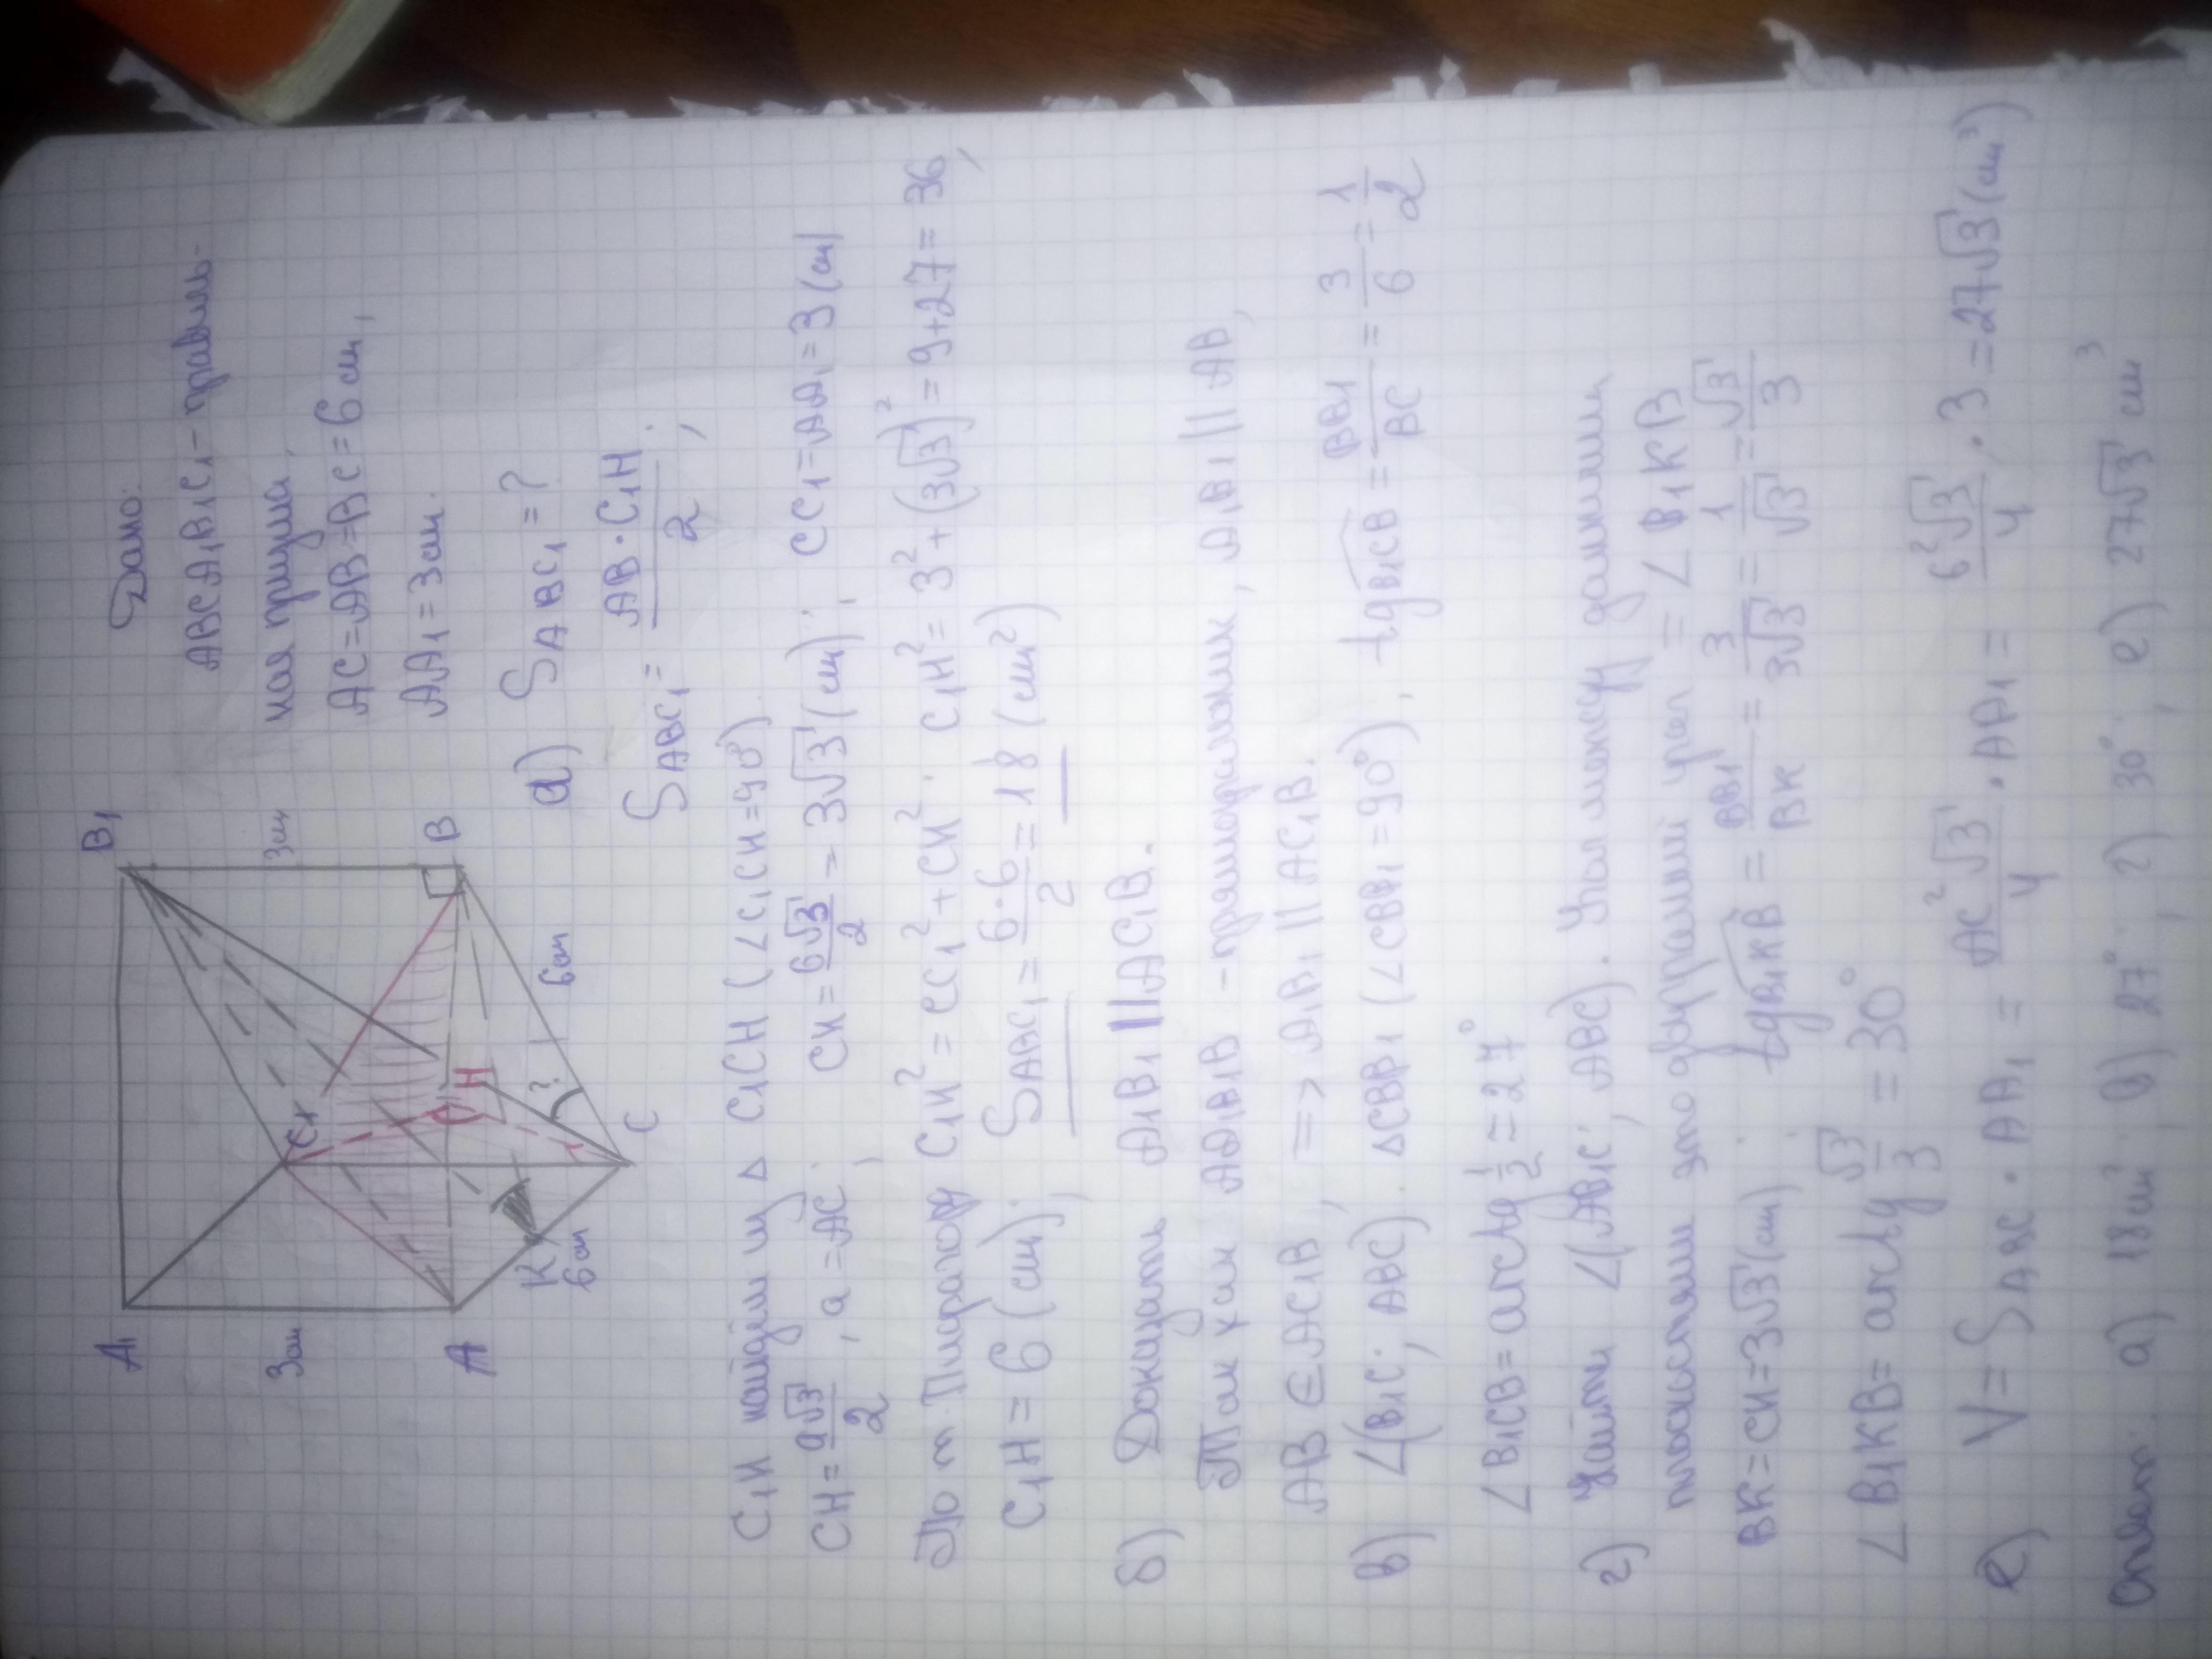 A₁
B₁
3 см
3 см
C₁
A
B
H
K
?
6 см
6 см
C
Дано:
ABCA₁B₁C₁ - правиль-
ная призма,
AC=AB=BC=6 см,
AA₁=3 см.
а) S ABC₁ = ?
S ABC₁ = AB·C₁H / 2 ;
C₁H найдём из Δ C₁CH (∠C₁CH=90°)
CH = a√3/2 , a = AC ; CH = 6√3/2 = 3√3 (см) ; CC₁=AA₁=3 (см)
По т. Пифагору C₁H² = CC₁² + CH² ; C₁H² = 3² + (3√3)² = 9+27 = 36,
C₁H = 6 (см) ; S ABC₁ = 6·6/2 = 18 (см²)
б) Доказать A₁B₁ || AC₁B.
Так как AA₁B₁B - прямоугольник, A₁B₁ || AB,
AB ∈ AC₁B, => A₁B₁ || AC₁B.
в) ∠(B₁C; ABC). ΔCBB₁ (∠CBB₁=90°), tg B₁CB = BB₁/BC = 3/6 = 1/2
∠B₁CB = arctg 1/2 ≈ 27°
г) Найти ∠(AB₁C; ABC). Угол между данными
плоскостями это двугранный угол = ∠B₁KB
BK=CH=3√3 (см) ; tg B₁KB = BB₁/BK = 3/3√3 = 1/√3 = √3/3
∠B₁KB = arctg √3/3 = 30°
е) V = S ABC · AA₁ = AC²√3/4 · AA₁ = 6²√3/4 · 3 = 27√3 (см³)
Ответ: а) 18 см²; в) 27°; г) 30°; е) 27√3 см³